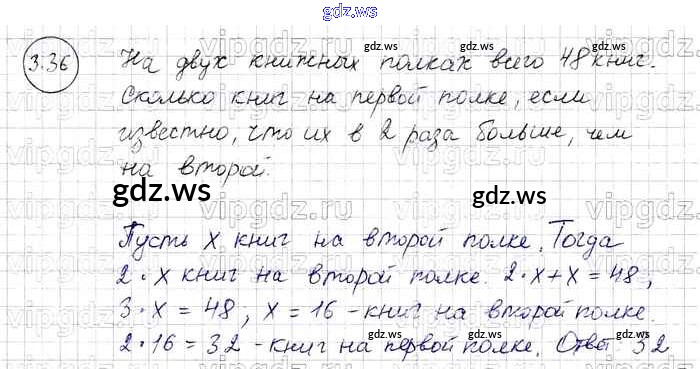 gdz.ws
3.36 На двух книжных полках всего 48 книг.
Сколько книг на первой полке, если
известно, что их в 2 раза больше, чем
на второй.
Пусть x книг на второй полке. Тогда
2·x книг на второй полке. 2·x+x=48;
3·x=48; x=16 - книг на второй полке.
2·16=32 - книг на первой полке. Ответ 32
gdz.ws
gdz.ws
gdz.ws
gdz.ws
gdz.ws
gdz.ws
gdz.ws
gdz.ws
vipgdz.ru
vipgdz.ru
vipgdz.ru